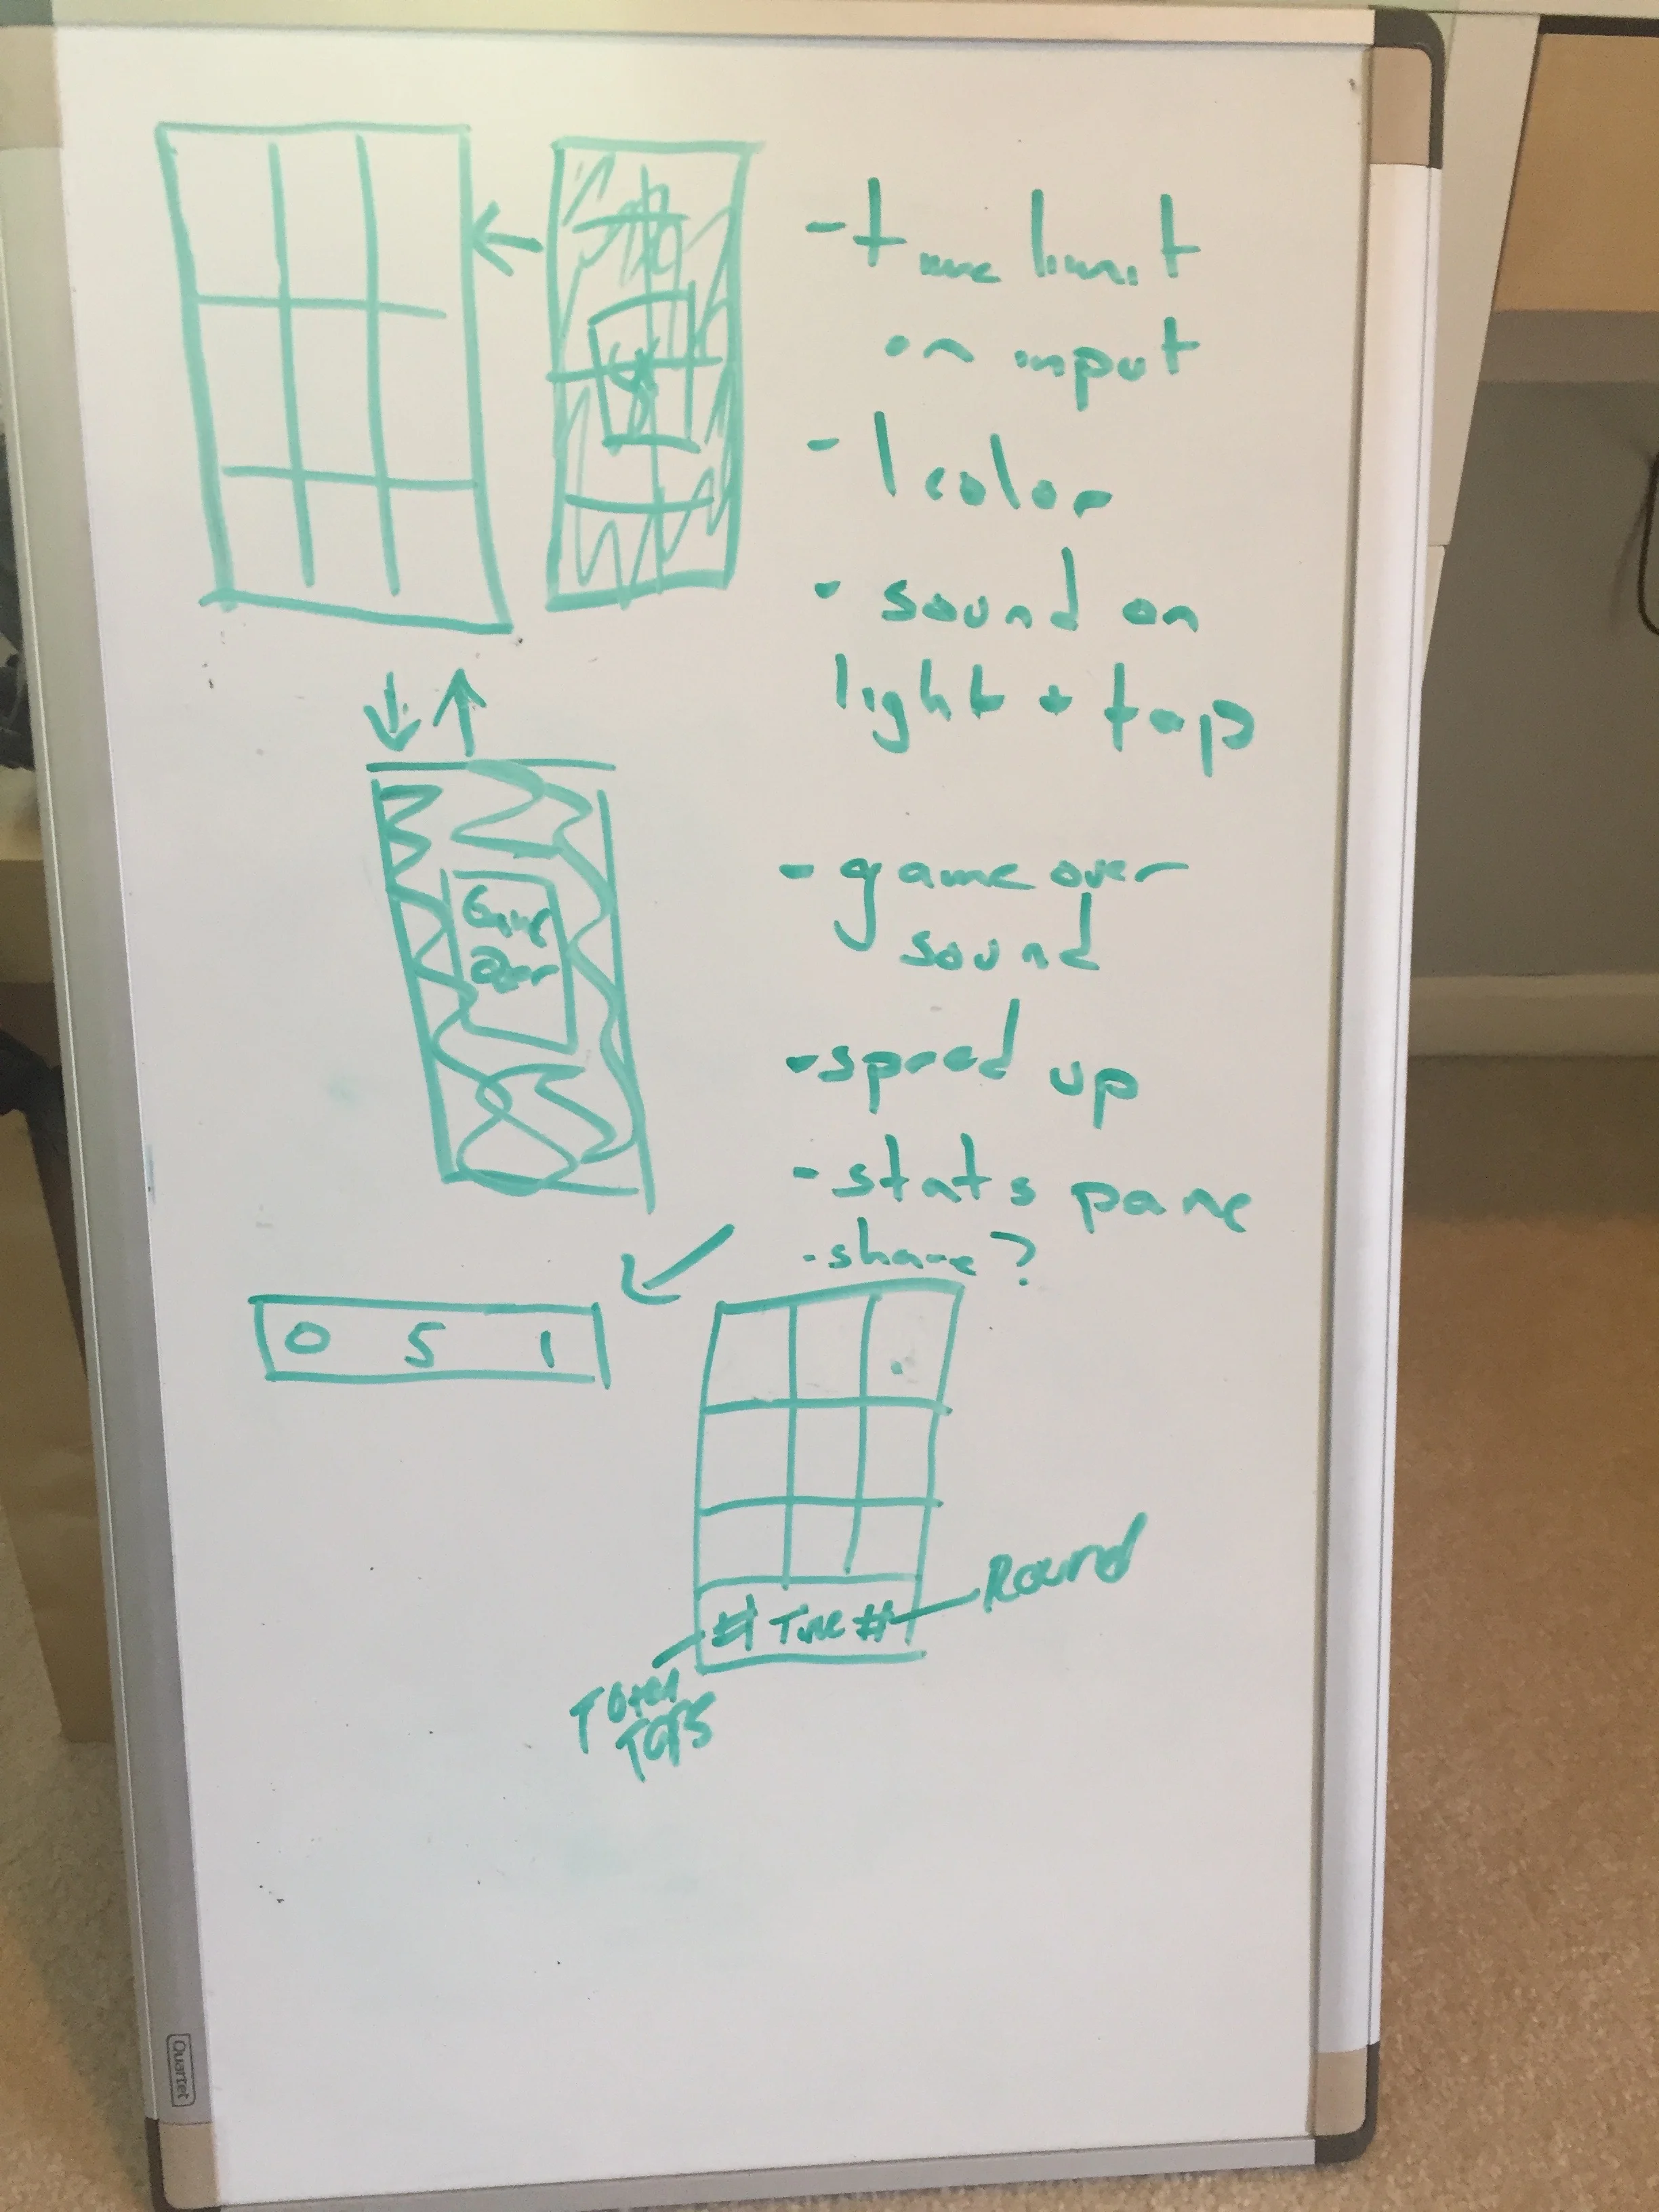 - time limit
on input
- 1 color
- sound on
light + tap
Game
Over
- game over
sound
- speed up
- stats pane
- share?
0 5 1
# Time #
Round
Total
Taps
Quartet